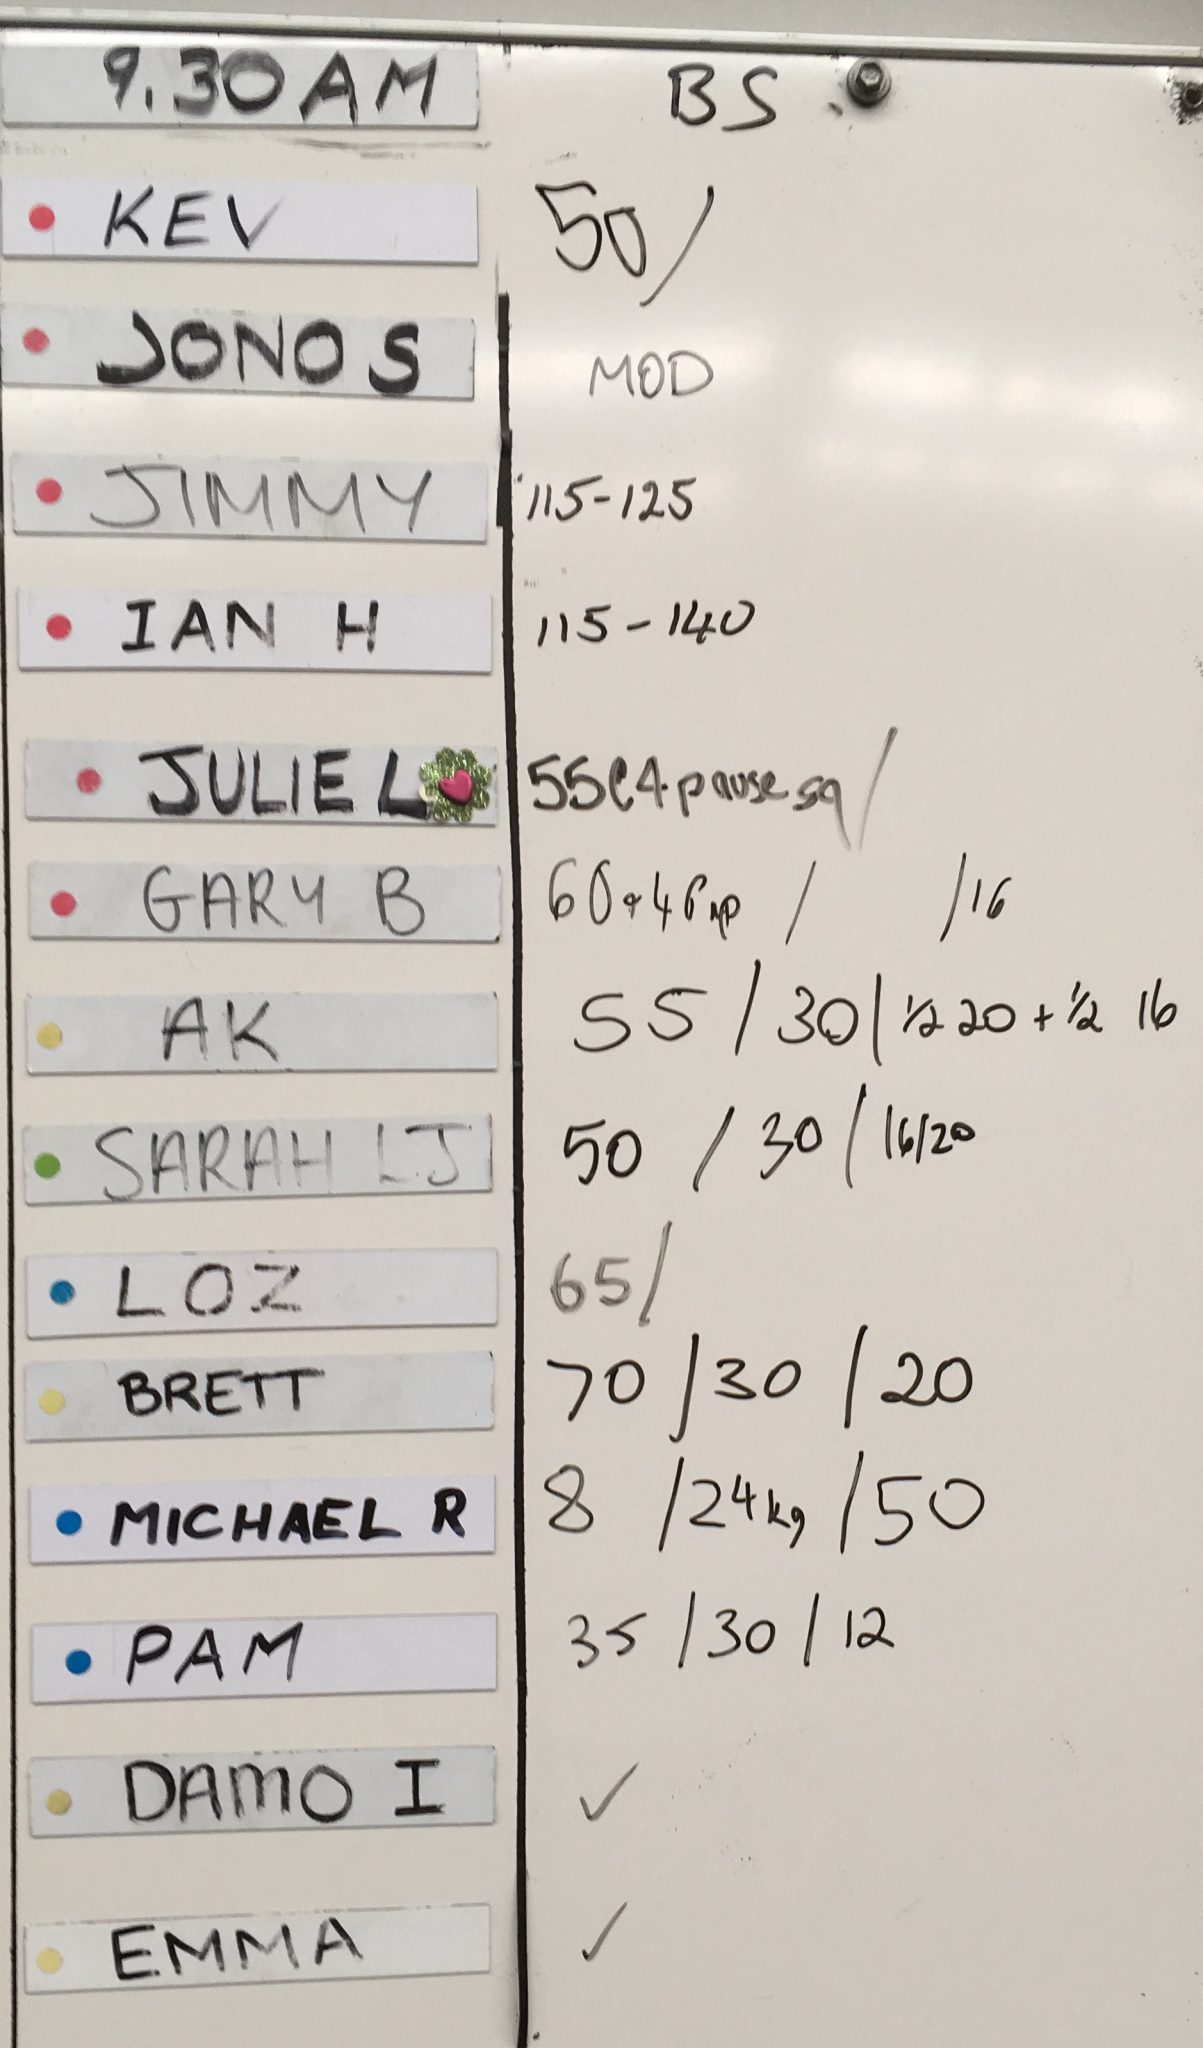 9.30AM BS
KEV 50/
JONO S MOD
JIMMY 115-125
IAN H 115-140
JULIE L 55@4 pause sq /
GARY B 60+ / /16
AK 55 / 30 / 1/2 20 + 1/2 16
SARAH LJ 50 / 30 / 16/20
LOZ 65/
BRETT 70 / 30 / 20
MICHAEL R 8 / 24kg / 50
PAM 35 / 30 / 12
DAMO I ✓
EMMA ✓